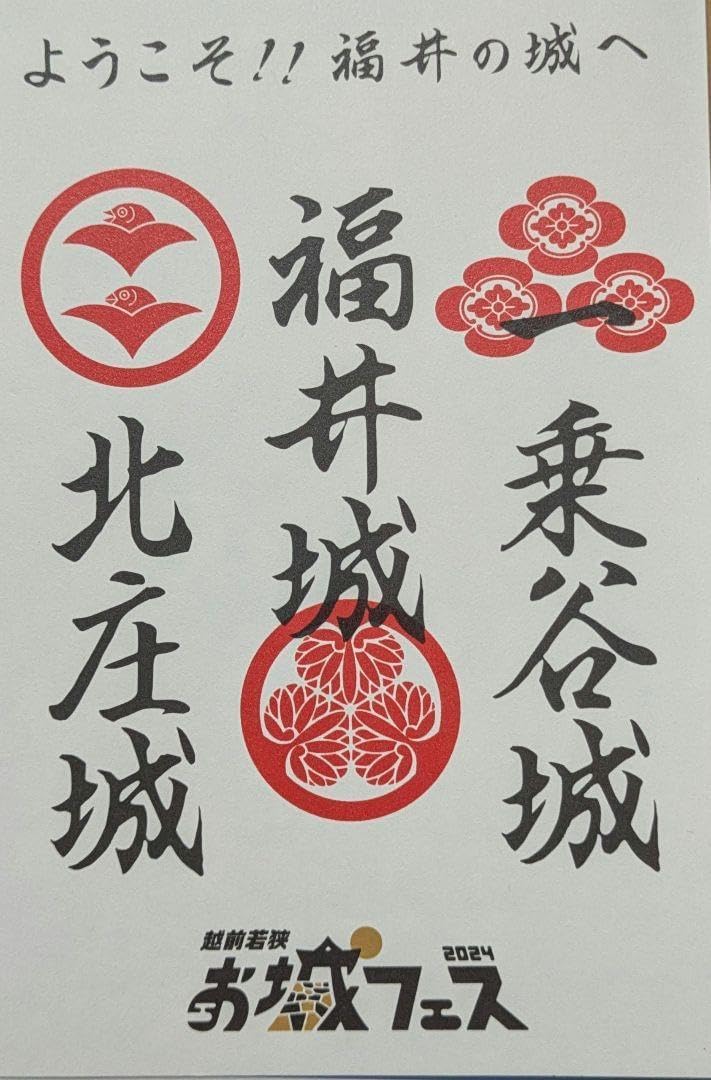 ようこそ!! 福井の城へ
一乗谷城
福井城
北庄城
越前若狭
お城フェス
2024